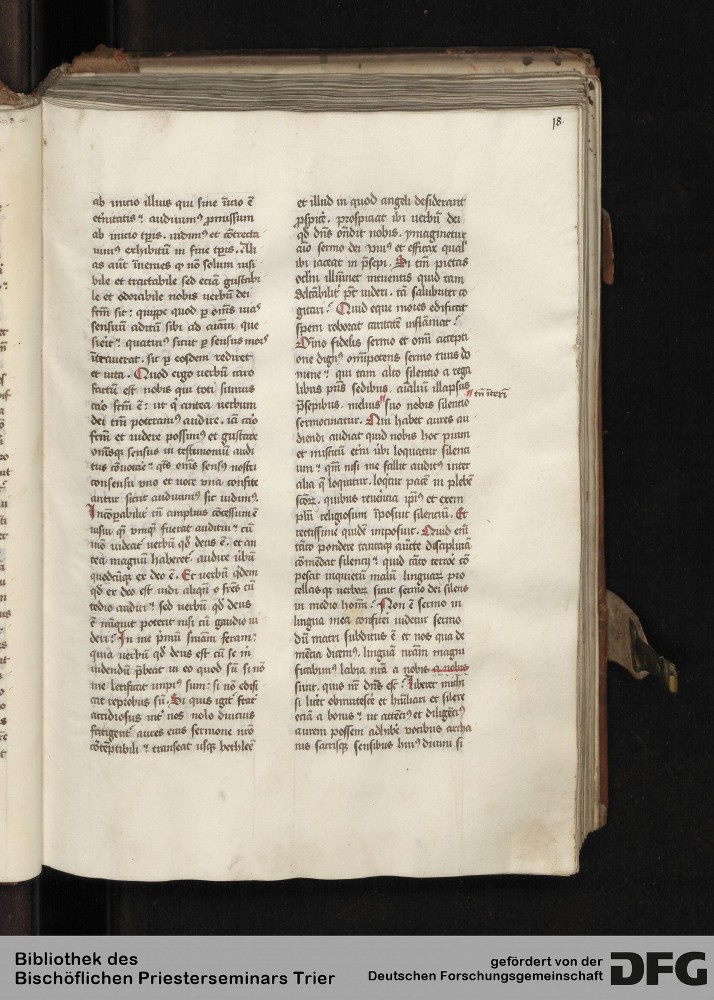 18
ab inicio illius qui sine inicio ē
et̄nitatis ⁊ audiuimꝰ promissum
ab inicio tp̄is. uidimꝰ et cōtrecta
uimꝰ exhibitū in fine tp̄is. Ali
as aūt īuenies ꝙ nō solum uisi
bile et tractabile sed eciā gustabi
le et odorabile nobis uerbū dei
fc̄m sit: quippe quod ꝑ om̄s uias
sensuū aditū sibi ad aīam que
siuit ⁊ quatinꝰ sicut ꝑ sensus mors
īt̄rauerat. sic ꝑ eosdem rediret
et uita. Quod ergo uerbū caro
factū est nobis qui toti sumus
caro fc̄m ē: ut qͥ antea uerbum
dei tm̄ poteramꝰ audire. iā caro
fc̄m et uidere possimꝰ et gustare
om̄esqꝫ sensus in testimoniū audi
tus cōuocare ⁊ qͣts om̄s sensꝰ nostri
consensu uno et uoce una confite
antur sicut audiuimꝰ sic uidimꝰ.
Incōparabiliter tn̄ amplius cōcessum ē
uisui qͣ umqͣ fuerat auditui ⁊ cū
mō uideat̄ uerbū qd̄ deus ē. et an
tea magnū haberet̄ audire ubū
quodcūqꝫ ex deo ē. Et uerbū qͥdem
qd̄ ex deo est uidi aliqn̄ o fr̄es cū
tedio audiri ⁊ sed uerbū qd̄ deus
ē nūquit poterit nisi cū gaudio ui
deri: In me pͥmū sn̄iam feram:
quia uerbū qd̄ deus est cū se m̄
uidendū p̄beat in eo quod sū si nō
me letificat impiꝰ sum: si nō edifi
cat reprobus sū. Si quis igit̄ frat̄
accidiosus int̄ nos nolo diucius
fatigent̄ aures eius sermone nr̄o
cōtēptibili ⁊ transeat usqꝫ bethleē
et illud in quod angeli desiderant
ꝓspice̓. prospiciat ibi uerbū dei
qd̄ dn̄s ondit nobis. ymaginetur
aīo sermo dei uiuꝰ et efficax qual̓
ibi iaceat in p̄sepi. Si tm̄ pietas
oclm̄ illuīnet intuentis quid tam
delcābilit̓ pt̄ uideri. tā salubriter co
gitari? Quid eque mores edificat
spem roborat caritatē inflāmat?
Omo fidelis sermo et om̄i accepti
one dignꝰ om̄ipotens sermo tuus do
mine ⁊ qui tam alto silencio a rega
libus pris sedibus. aīaliū illapsus
p̄sepibus. melius suo nobis silencio
sermocinatur. Qui habet aures au
diendi audiat quid nobis hoc pium
et misticū et̄ni ūbi loquatur silenci
um ⁊ qm̄ nisi me fallit auditꝰ inter
alia qͤ loquitur. loqͥtur pacē in plebē
sc̄oꝝ. quibus reuerēcia ipīꝰ et exem
plū religiosum īposuit silenciū. Et
rectissime quidē imposuit. Quid enī
tāto pondere tantaqꝫ auctē disciplinā
cōmēdat silencij ⁊ quid tāto terrore cō
pescat inquietū malū linguaꝝ pro
cellasqꝫ uerboꝝ sicut sermo dei silens
in medio hoīm: Non ē sermo in
lingua mea confiteri uidetur sermo
dū matri subditus ē et nos qua de
mēcia dicemꝰ. linguā nr̄am magni
ficabimꝰ labia nr̄a a nobis a nobis
sunt. quis nr̄ dn̄s est? Liberet michi
si liceret obmutesce̓ et hūiliari et silere
eciā a bonis ⁊ ut attēciꝰ et diligēciꝰ
aurem possem adhibe̓ uocibus archa
nis sacrisqꝫ sensibus huiꝰ diuini si
tn̄ īterī
Bibliothek des
Bischöflichen Priesterseminars Trier
gefördert von der
Deutschen Forschungsgemeinschaft
DFG